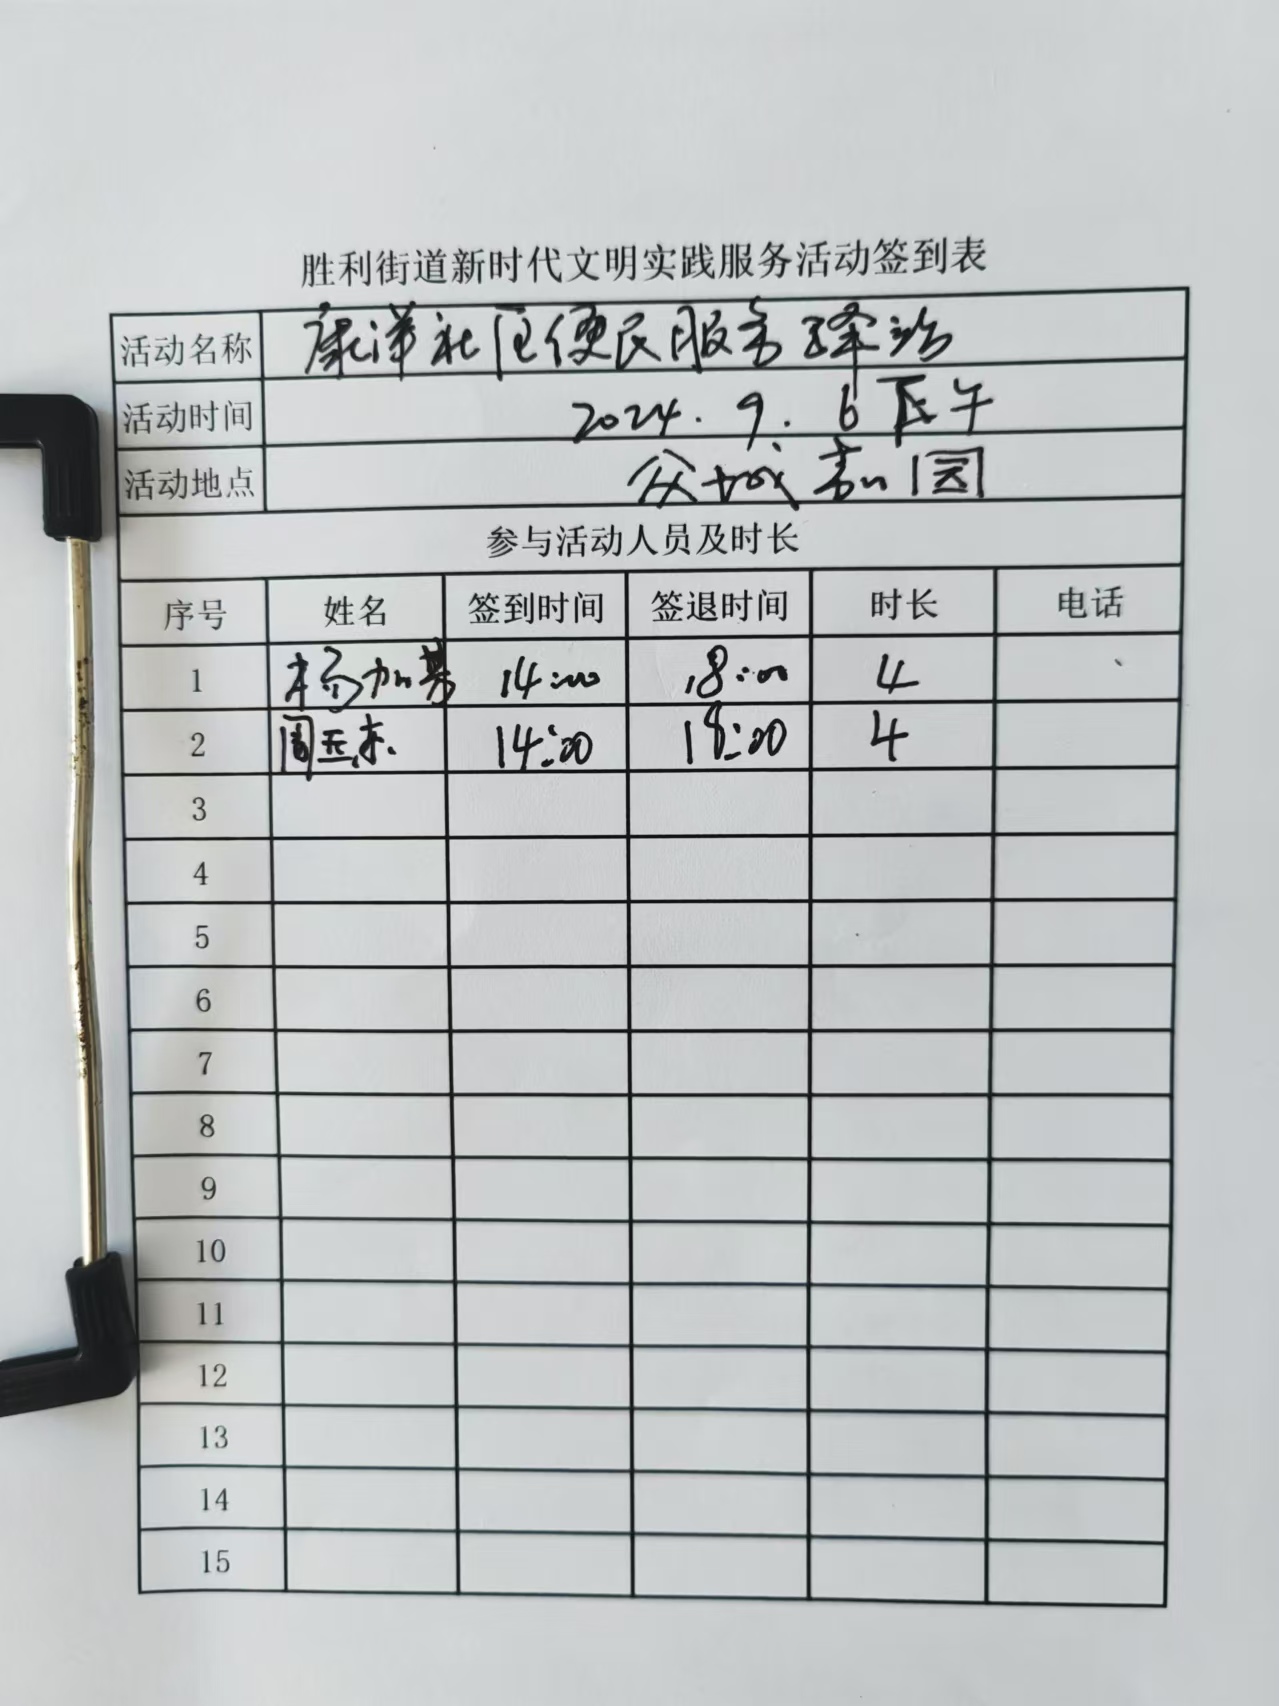 胜利街道新时代文明实践服务活动签到表
活动名称 康洋社区便民服务驿站
活动时间 2024.9.6下午
活动地点 众城嘉园
参与活动人员及时长
序号 姓名 签到时间 签退时间 时长 电话
1 杨加基 14:00 18:00 4
2 周玉东 14:00 18:00 4
3
4
5
6
7
8
9
10
11
12
13
14
15